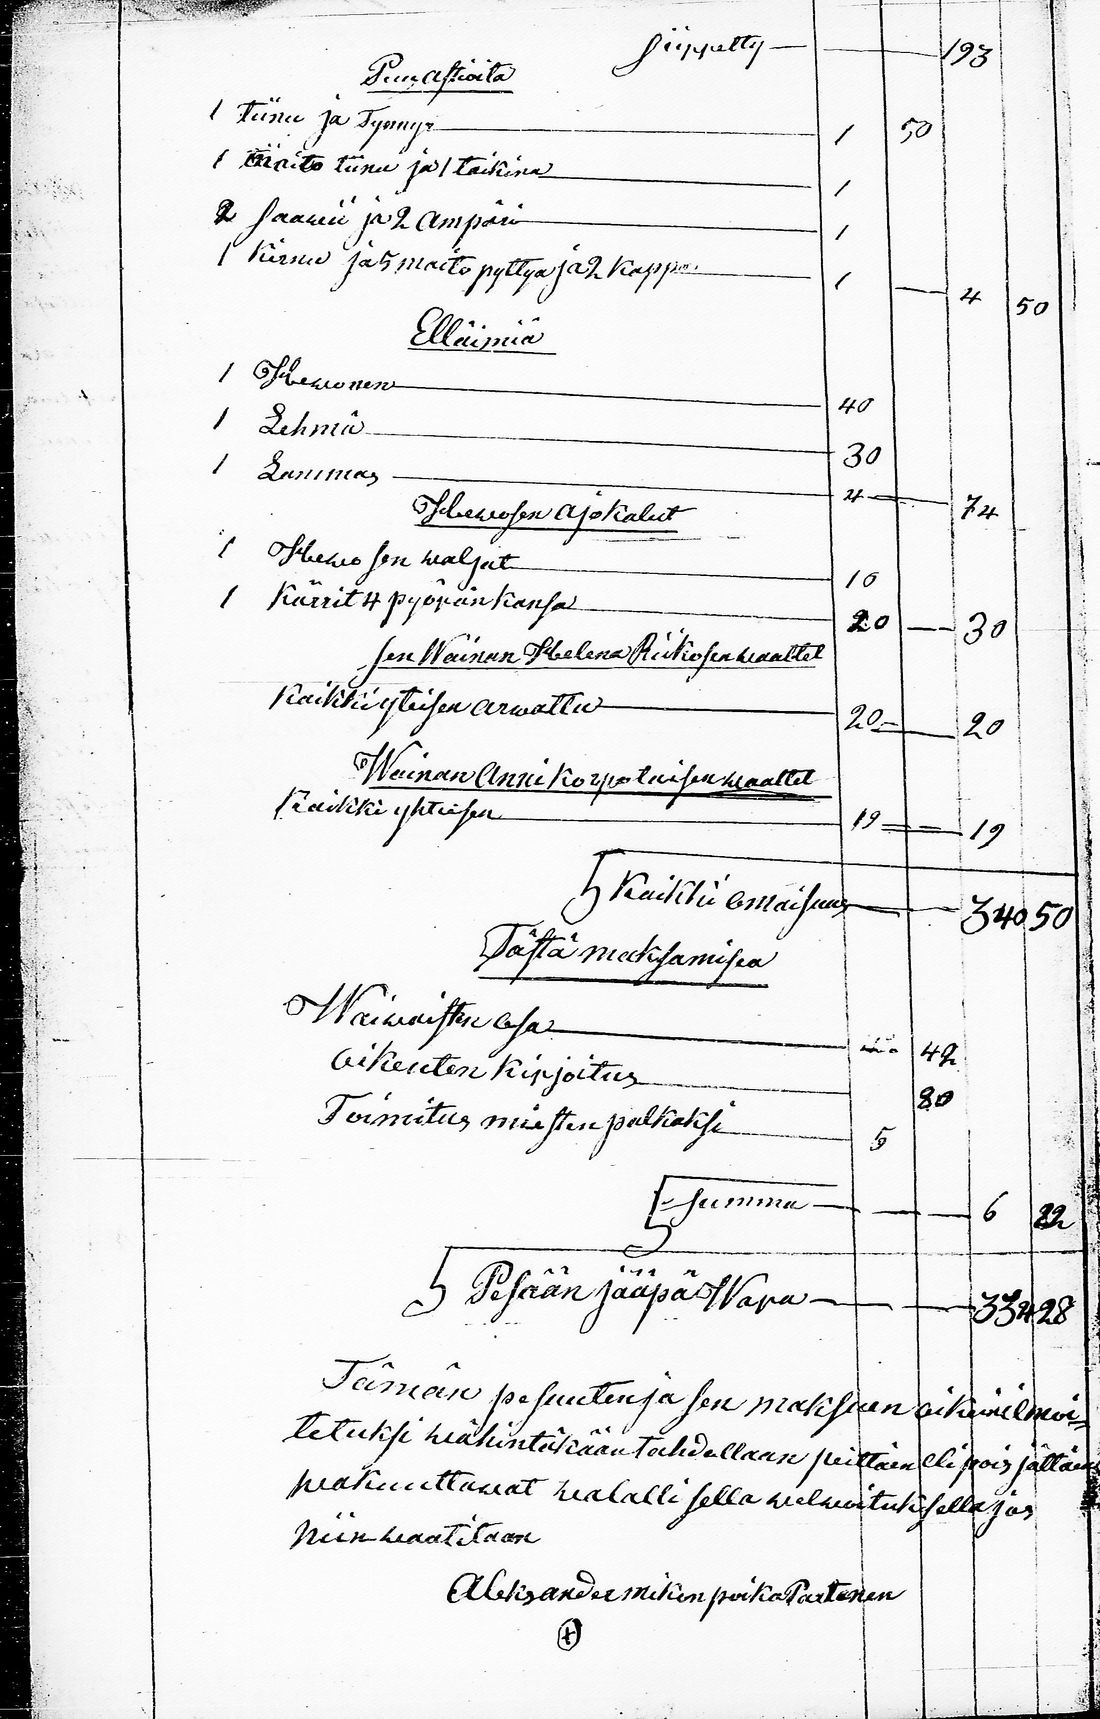 Siirretty — — 193
Puu Astioita
1 tiinu ja Tynnyr 1 50
1 Maito tiinu ja 1 taikina 1
2 Saawii ja 2 Ampäri 1
1 Kirnu ja 5 maito pyttyä ja 2 Kappa 1 — 4 50
Elläimiä
1 Hewonen 40
1 Lehmä 30
1 Lammas 4 — 74
Hewosen Ajokalut
1 Hewosen waljat 10
1 Kärrit 4 pyörän kansa 20 — 30
sen Wainan Helena Riikosen waattet
Kaikki yteisen arwattu 20 — 20
Wainan Anni Korpolaisen waattet
Kaikki yhteisen 19 — 19
Kaikki Omaisuus — 340 50
Tästä maksamisea
Waiwaisten Osa 42
Oikeuten Kirjoitus 80
Toimitus miesten palkaksi 5
Summa — — 6 22
Pesään jääpä Wara — — 334 28
Tämän pesuuten ja sen maksuun oikein ilmoi-
tetuksi wähintäkään tahdollaan peittäen eli pois jättäen
wakuuttawat walallisella welwoituksella jos
niin waatitaan
Aleksander mikin poika Partanen